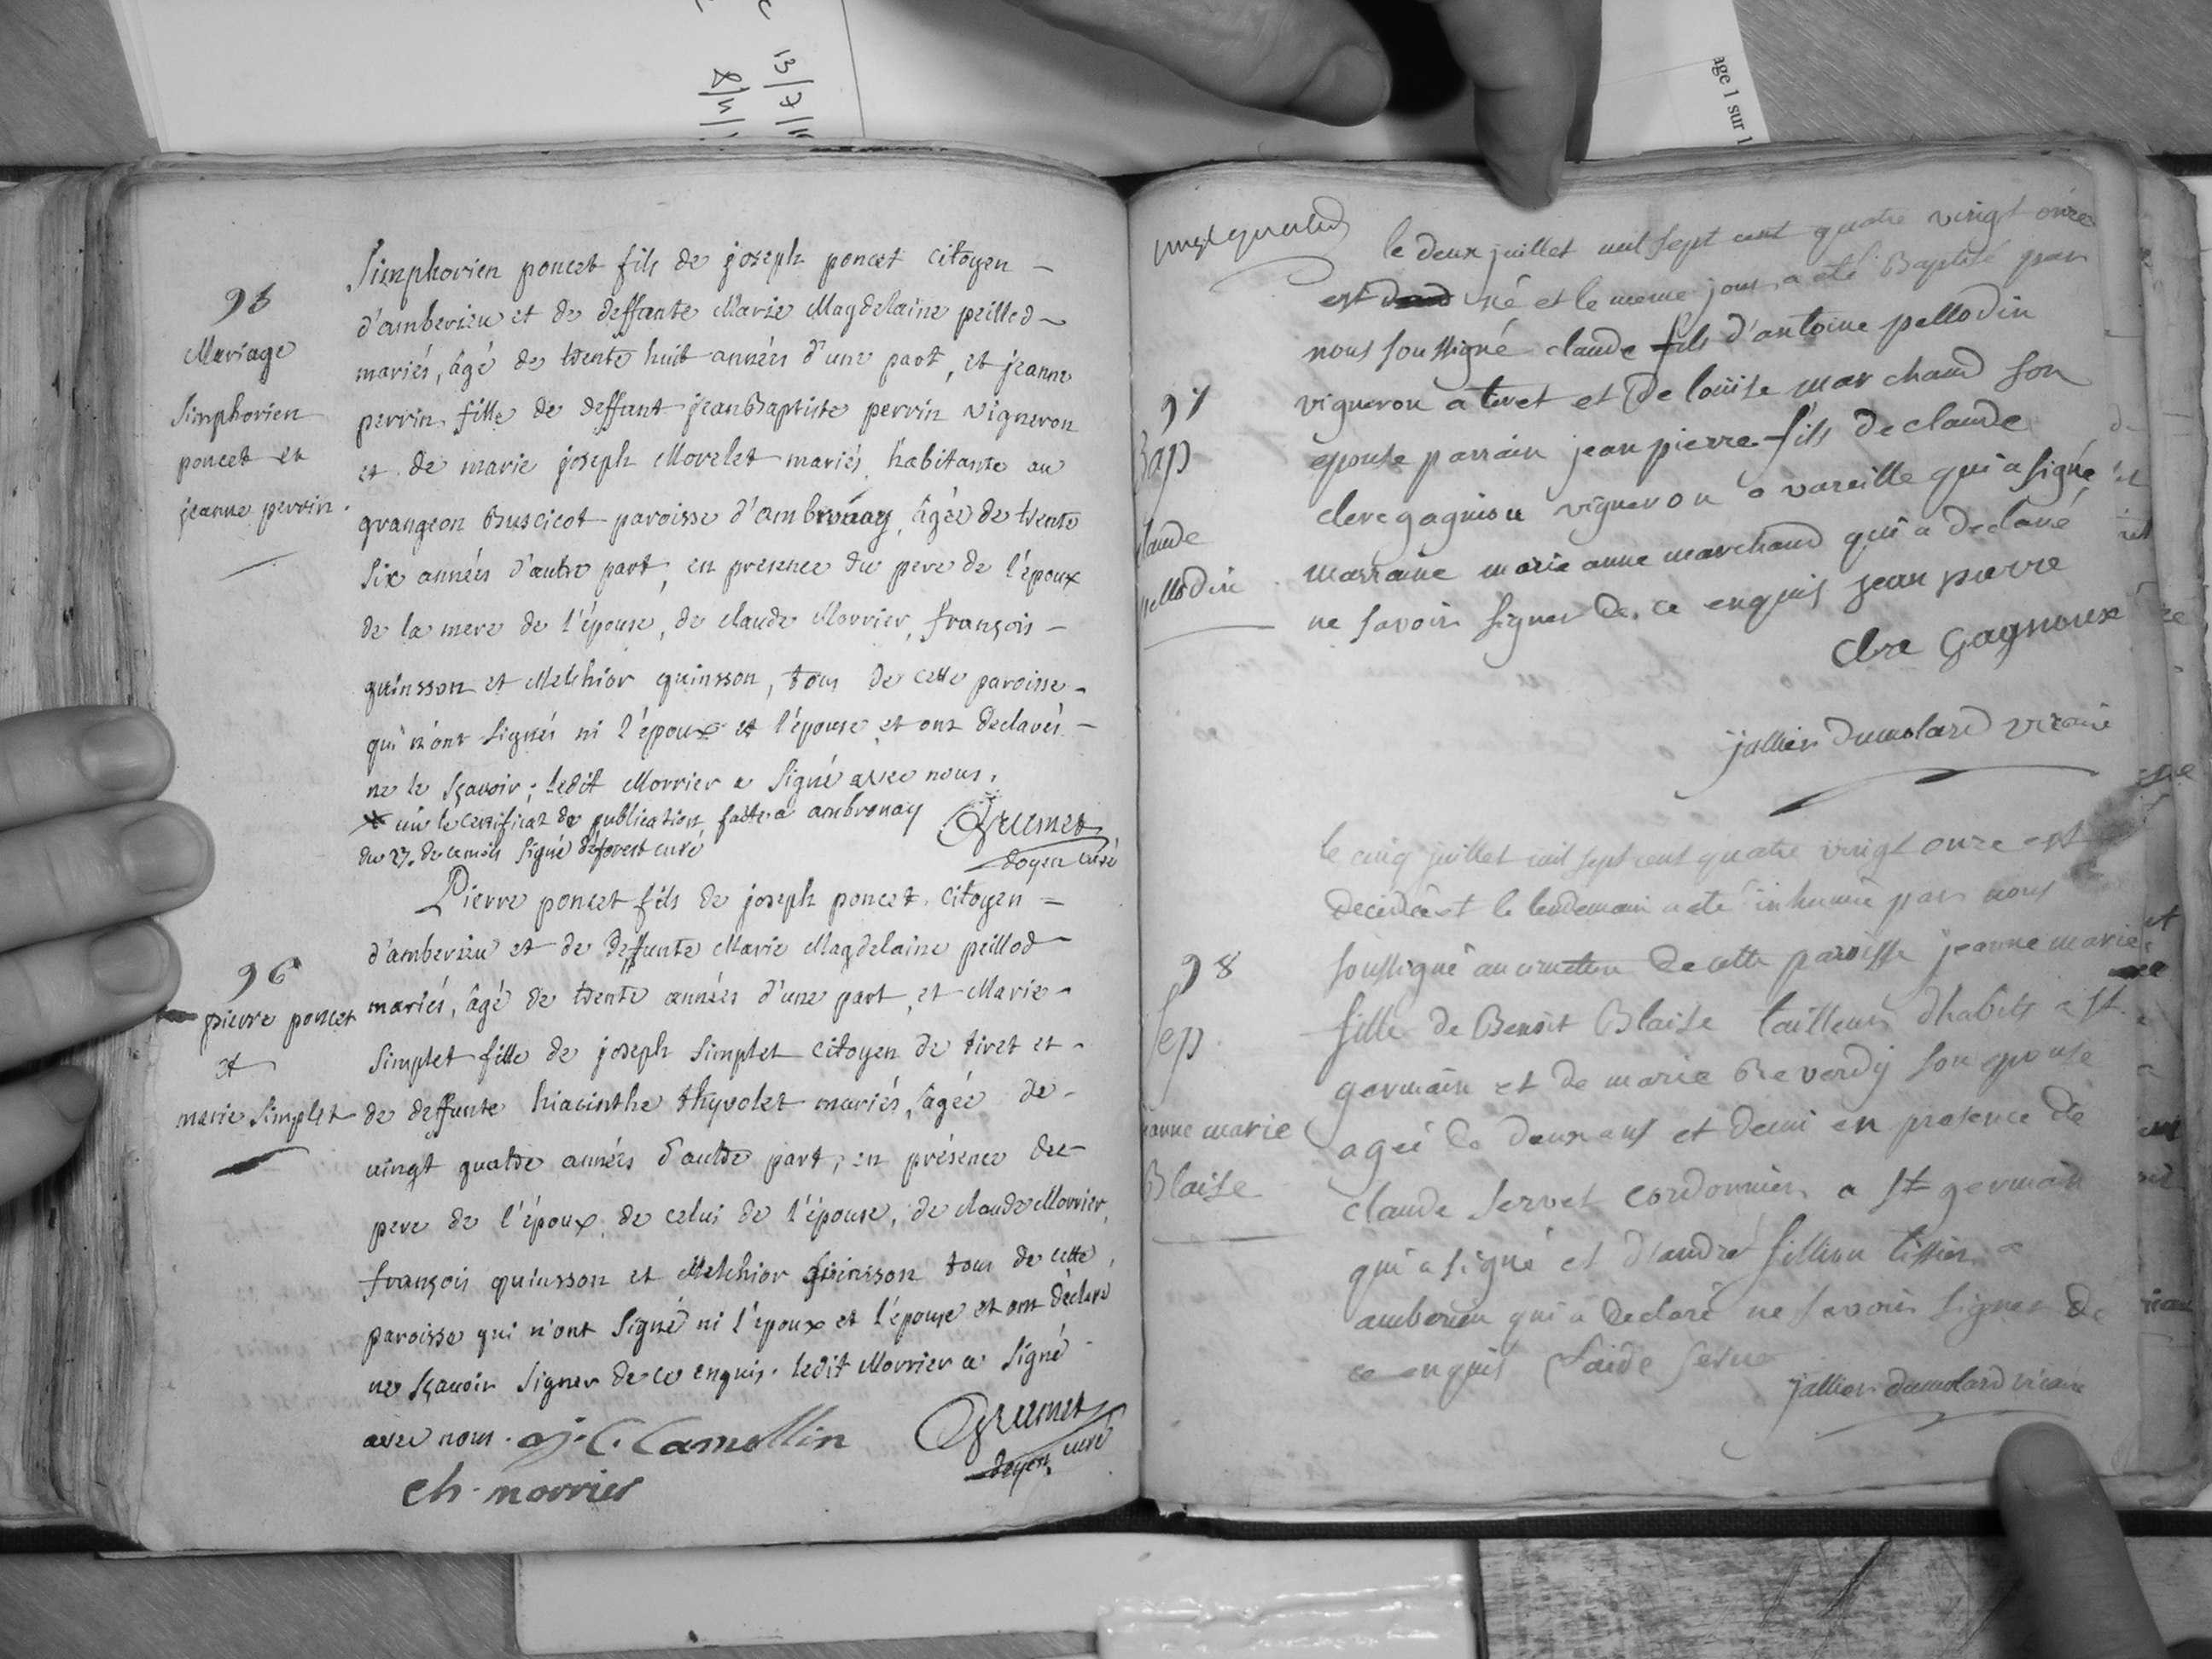 13/7/1
8/4/1
age 1 sur 1
95
Mariage
Simphorien
poncet et
jeanne perrin.
Simphorien poncet fils de joseph poncet citoyen
d'amberieu et de deffunte Marie Magdelaine peillod
mariés, âgé de trente huit années d'une part, et jeanne
perrin fille de deffunt jean Baptiste perrin vigneron
et de marie joseph Morelet mariés, habitante au
grangeon Buscicot paroisse d'ambronay, âgée de trente
six années d'autre part, en presence du pere de l'époux
de la mere de l'épouse, de claude Morrier, françois
quinsson et Melchior quinsson, tous de cette paroisse
qui n'ont signés ni l'époux et l'épouse et ont declarés
ne le sçavoir; ledit Morrier a signé avec nous.
vû le certificat de publication faitte a ambronay
du 27. de ce mois signé deforest curé
Grumet
doyen curé
96
pierre poncet
et
marie simplet
Pierre poncet fils de joseph poncet citoyen
d'amberieu et de deffunte Marie Magdelaine peillod
mariés, âgé de trente années d'une part, et Marie
simplet fille de joseph simplet citoyen de tiret et
de deffunte hiacinthe thyvolet mariés, âgée de
vingt quatre années d'autre part; en présence du
pere de l'époux, de celui de l'épouse, de claude Morrier,
françois quinsson et Melchior quinsson tous de cette
paroisse qui n'ont signé ni l'époux et l'épouse et ont déclaré
ne sçavoir signer de ce enquis. ledit Morrier a signé
avec nous. j. C. Camollin
Grumet
doyen, curé
Ch. morrier
97
Bap
laude
pellodin
le deux juillet mil sept cent quatre vingt onze
est né et le meme jour a eté Baptisé par
nous soussigné claude fils d'antoine pellodin
vigneron a tiret et de loüise marchand son
epouse parrain jean pierre fils de claude
clere gagniou vigneron a vareille qui a signé
marraine marie anne marchand qui a declaré
ne savoir signer de ce enquis jean pierre
Clre Gagnoux
jallier dumolard vicaire
98
Sep
janne marie
Blaise
le cinq juillet mil sept cent quatre vingt onze est
decedée et le lendemain a eté inhumée par nous
soussigné au cimetiere de cette paroisse jeanne marie
fille de Benoit Blaise tailleur d'habits a st
germain et de marie Reverdy son epouse
agée de deux ans et demi en presence de
claude servet cordonnier a st germain
qui a signé et d'andré fillion tissier a
amberieu qui a declaré ne savoir signer de
ce enquis Claide serve
jallier dumolard vicaire